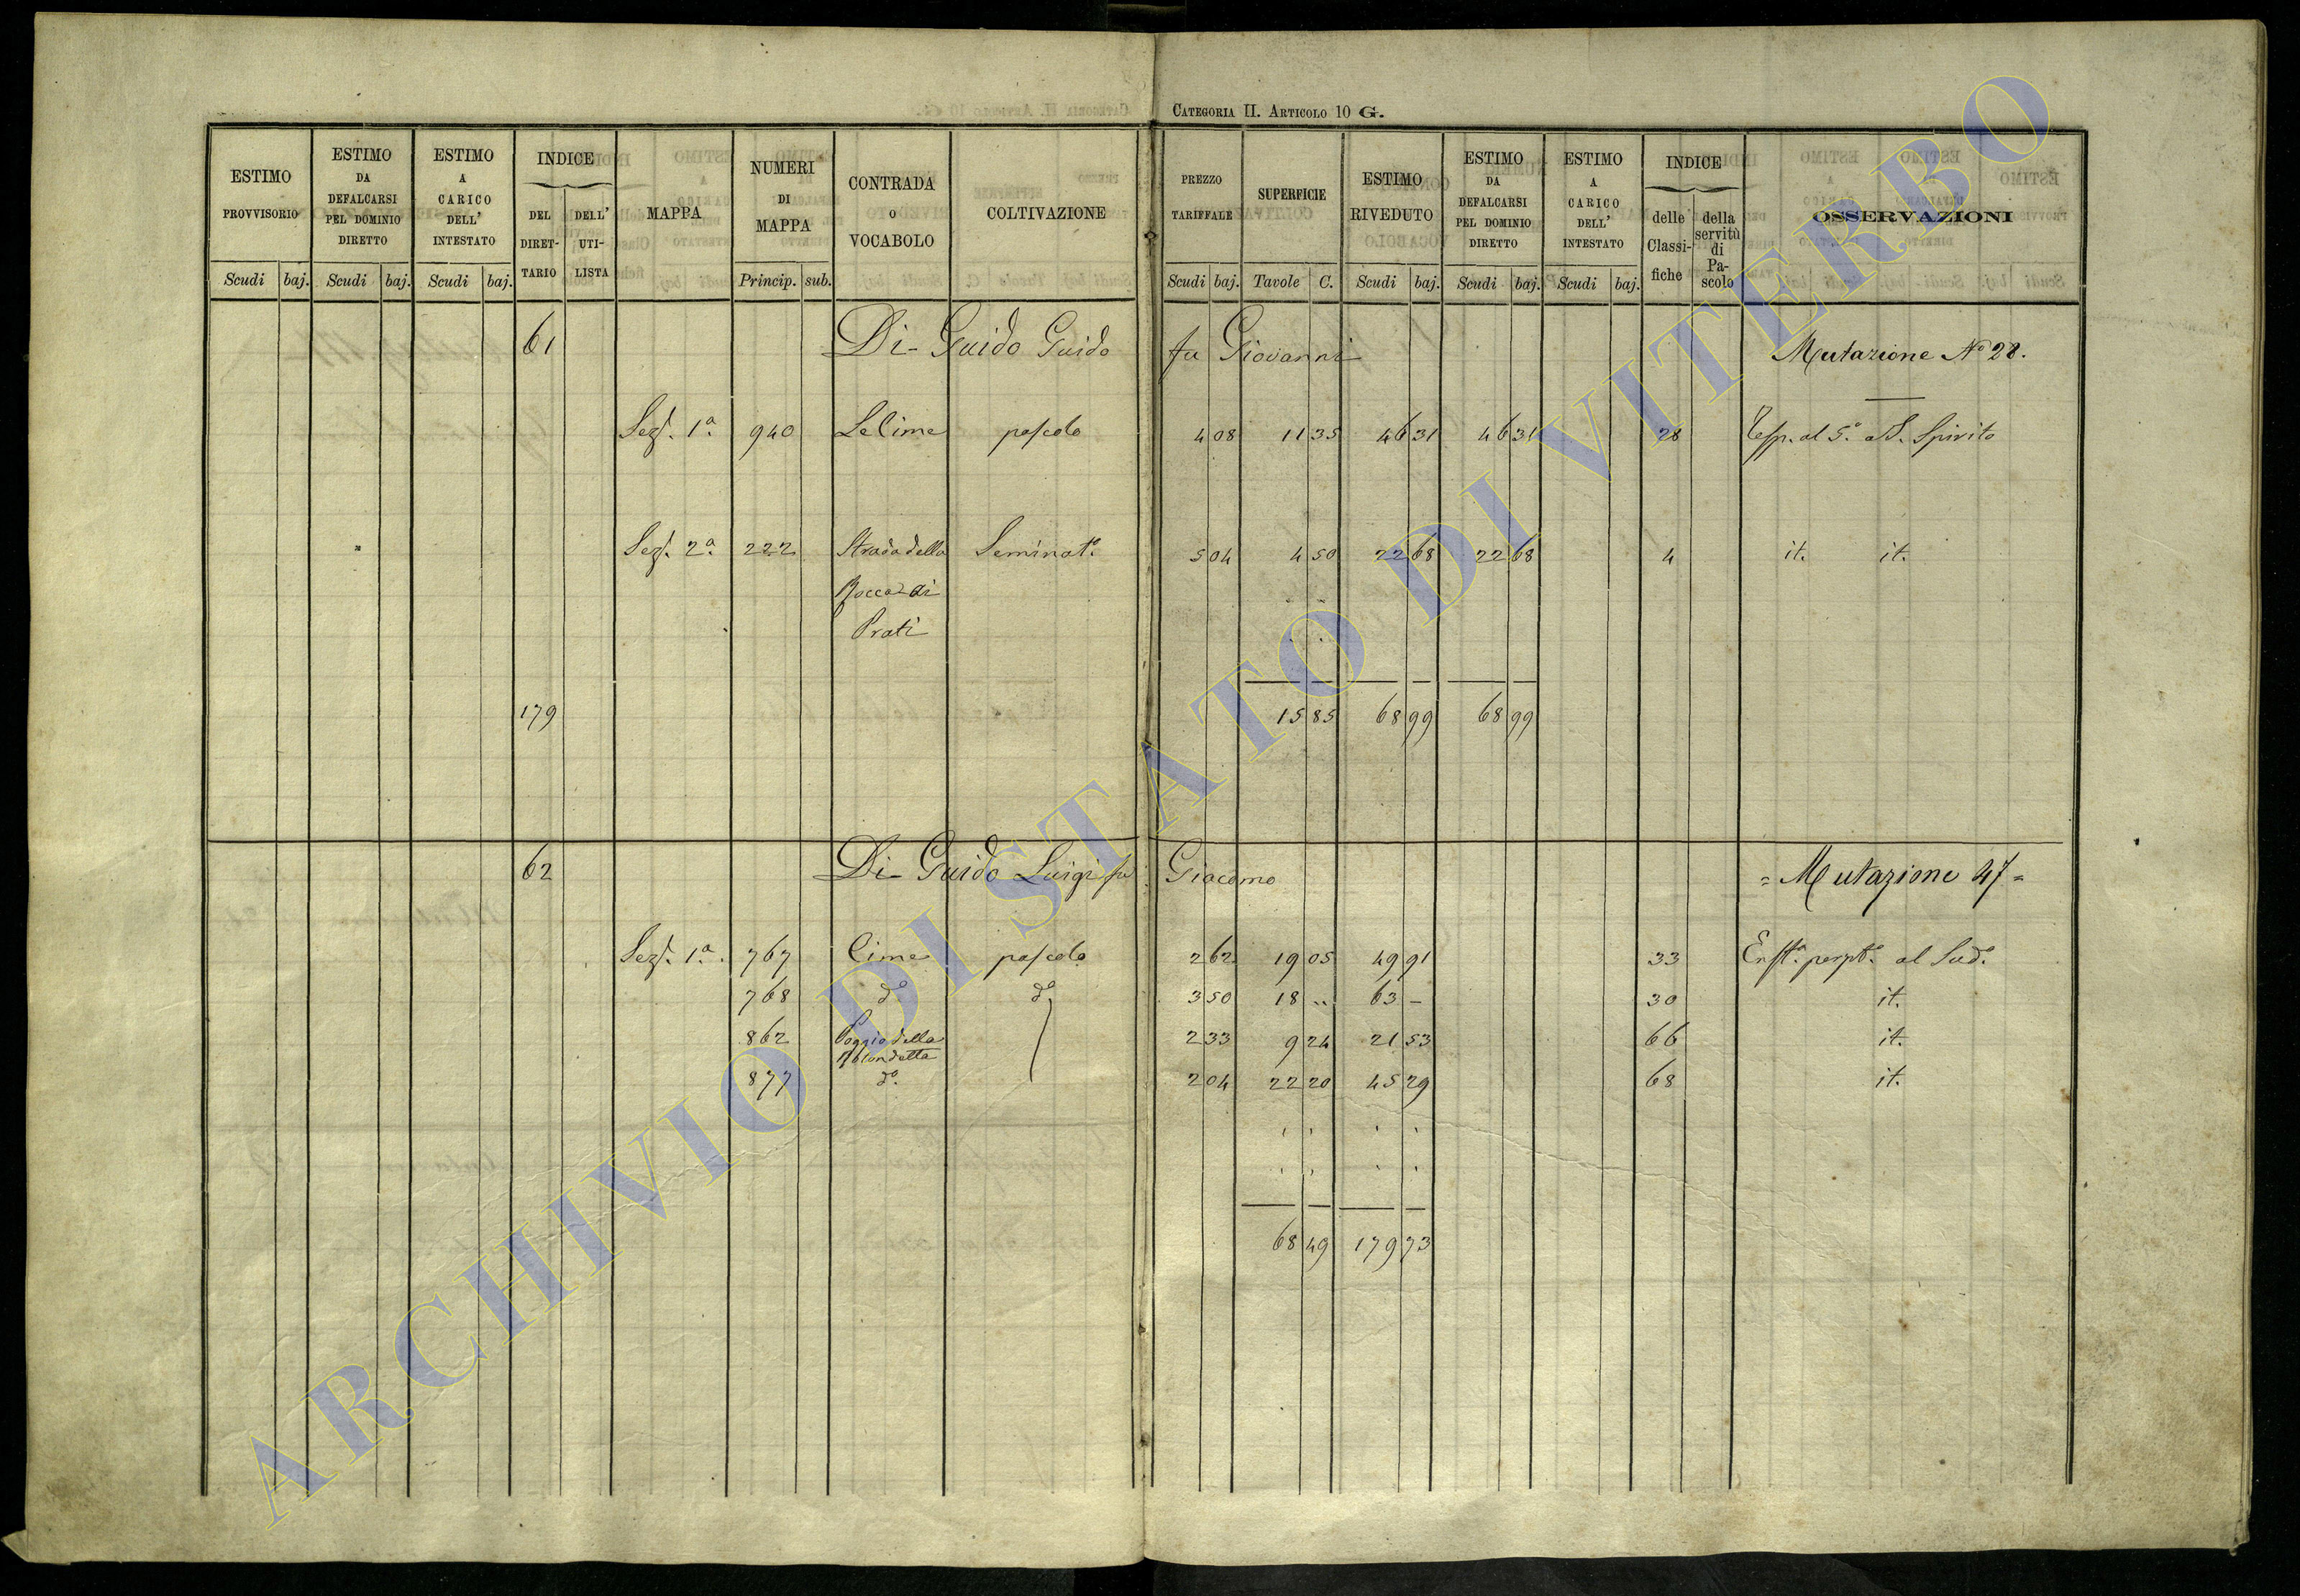 CATEGORIA II. ARTICOLO 10 G.
ESTIMO PROVVISORIO
ESTIMO DA DEFALCARSI PEL DOMINIO DIRETTO
ESTIMO A CARICO DELL' INTESTATO
INDICE
DEL DIRET-TARIO
DELL' UTI-LISTA
MAPPA
NUMERI DI MAPPA
CONTRADA O VOCABOLO
COLTIVAZIONE
PREZZO TARIFFALE
SUPERFICIE
ESTIMO RIVEDUTO
ESTIMO DA DEFALCARSI PEL DOMINIO DIRETTO
ESTIMO A CARICO DELL' INTESTATO
INDICE
delle Classi-fiche
della servitù di Pa-scolo
OSSERVAZIONI
Scudi baj. Scudi baj. Scudi baj. Princip. sub. Scudi baj. Tavole C. Scudi baj. Scudi baj. Scudi baj.
61 Di Guido Guido fu Giovanni Mutazione No 28.
Sez. 1a. 940 Le Cime pascolo 4 08 11 35 46 31 46 31 28 al 5o. a S. Spirito
Sez. 2a. 222 Strada della Seminato. 5 04 4 50 22 68 22 68 4 it. it.
Rocca di
Prati
179 15 85 68 99 68 99
62 Di Guido Luigi fu Giacomo = Mutazione 47 =
Sez. 1a. 767 Cime pascolo 2 62 19 05 49 91 33 al Sud.o
768 do do 3 50 18 .. 63 — 30 it.
862 Poggio della 2 33 9 24 21 53 66 it.
Rotondetta
877 do. 2 04 22 20 45 29 68 it.
68 49 179 73
ARCHIVIO DI STATO DI VITERBO